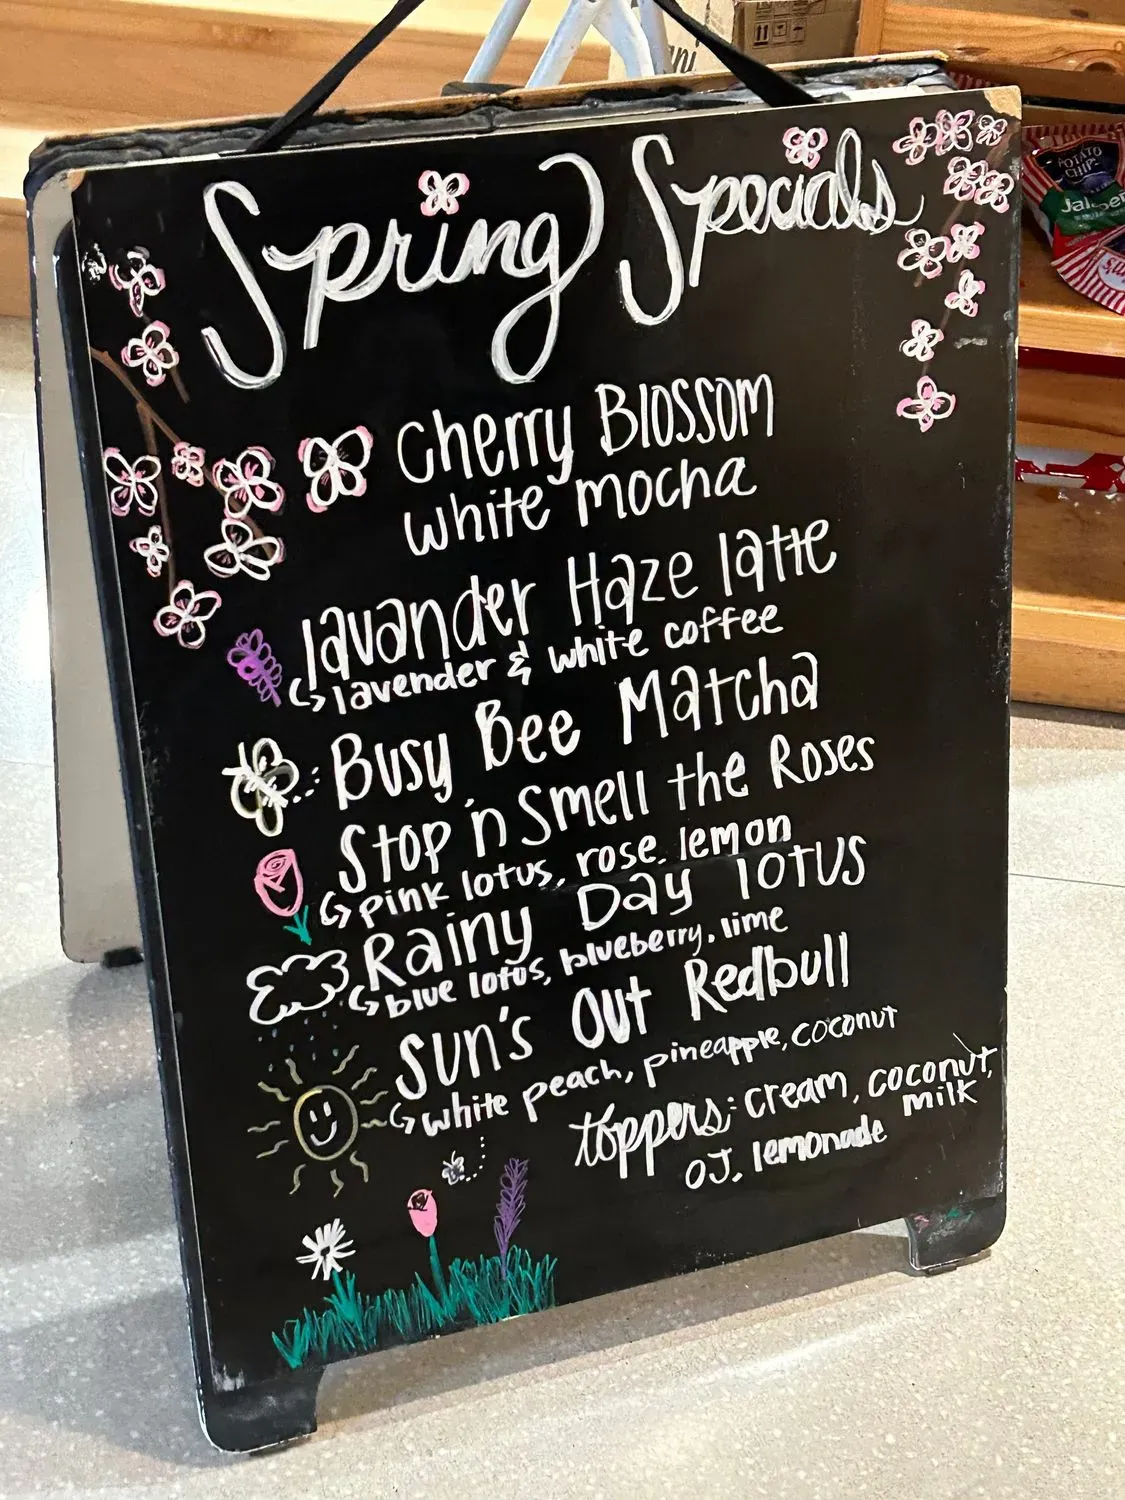 Spring Specials
Cherry Blossom
white mocha
lavander Haze latte
lavender & white coffee
Busy Bee Matcha
Stop 'n Smell the Roses
pink lotus, rose. lemon
Rainy Day lotus
blue lotus, blueberry. lime
Sun's out Redbull
white peach, pineapple, coconut
toppers: cream, coconut,
milk
OJ. lemonade
POTATO
CHIPS